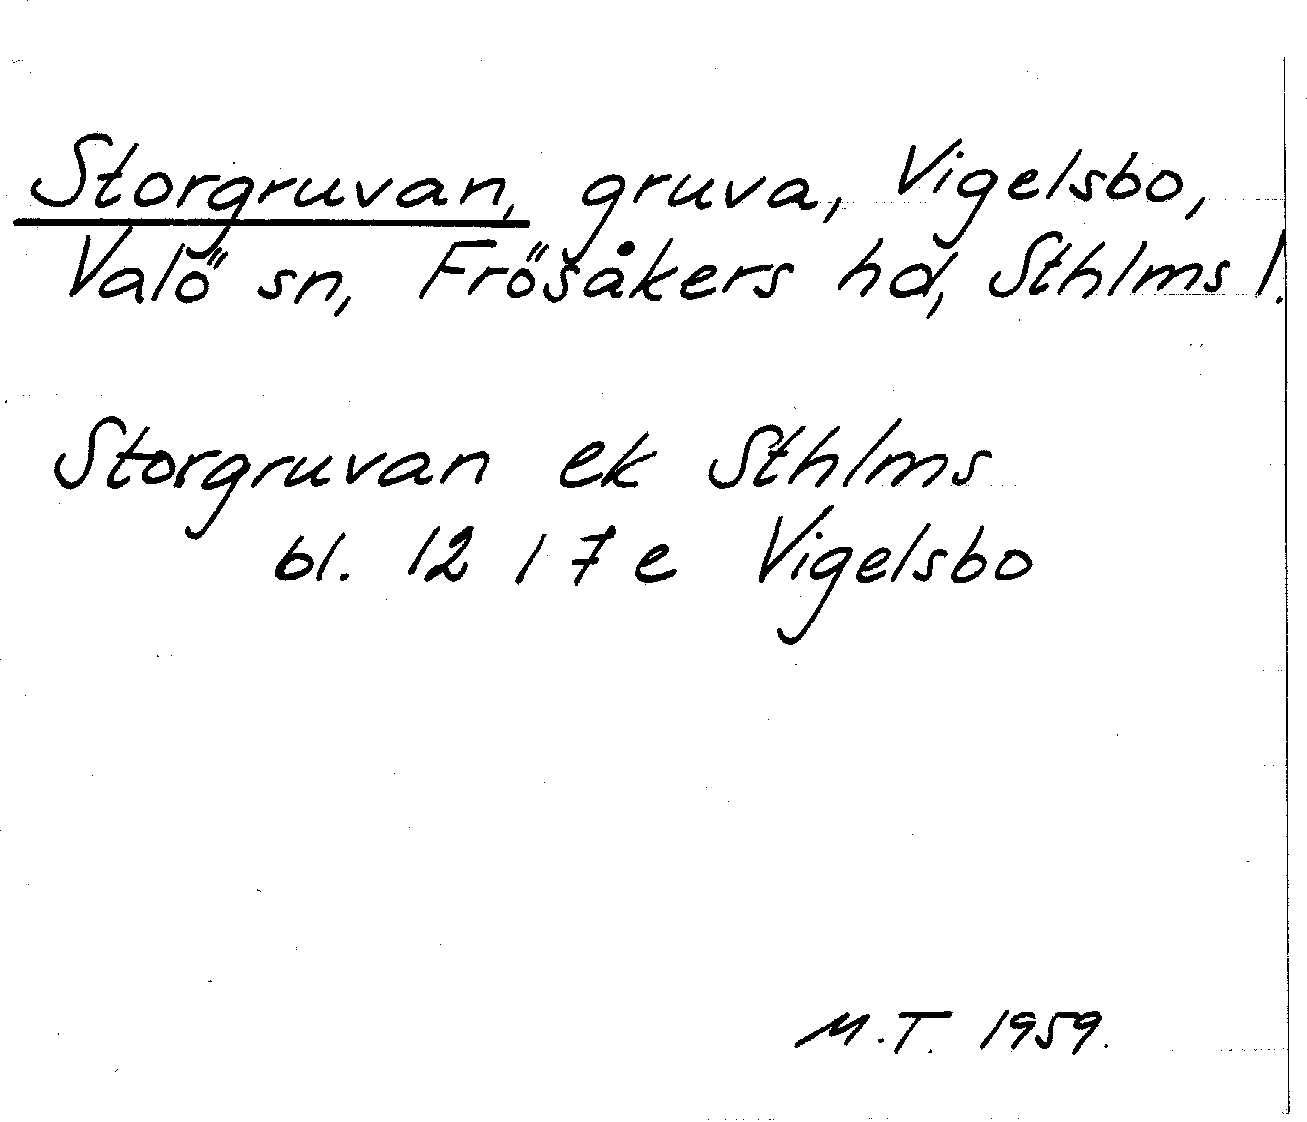 Storgruvan, gruva, Vigelsbo,
Valö sn, Frösåkers hd, Sthlms l.
Storgruvan ek Sthlms
bl. 12 I 7 e Vigelsbo
M.T. 1959.